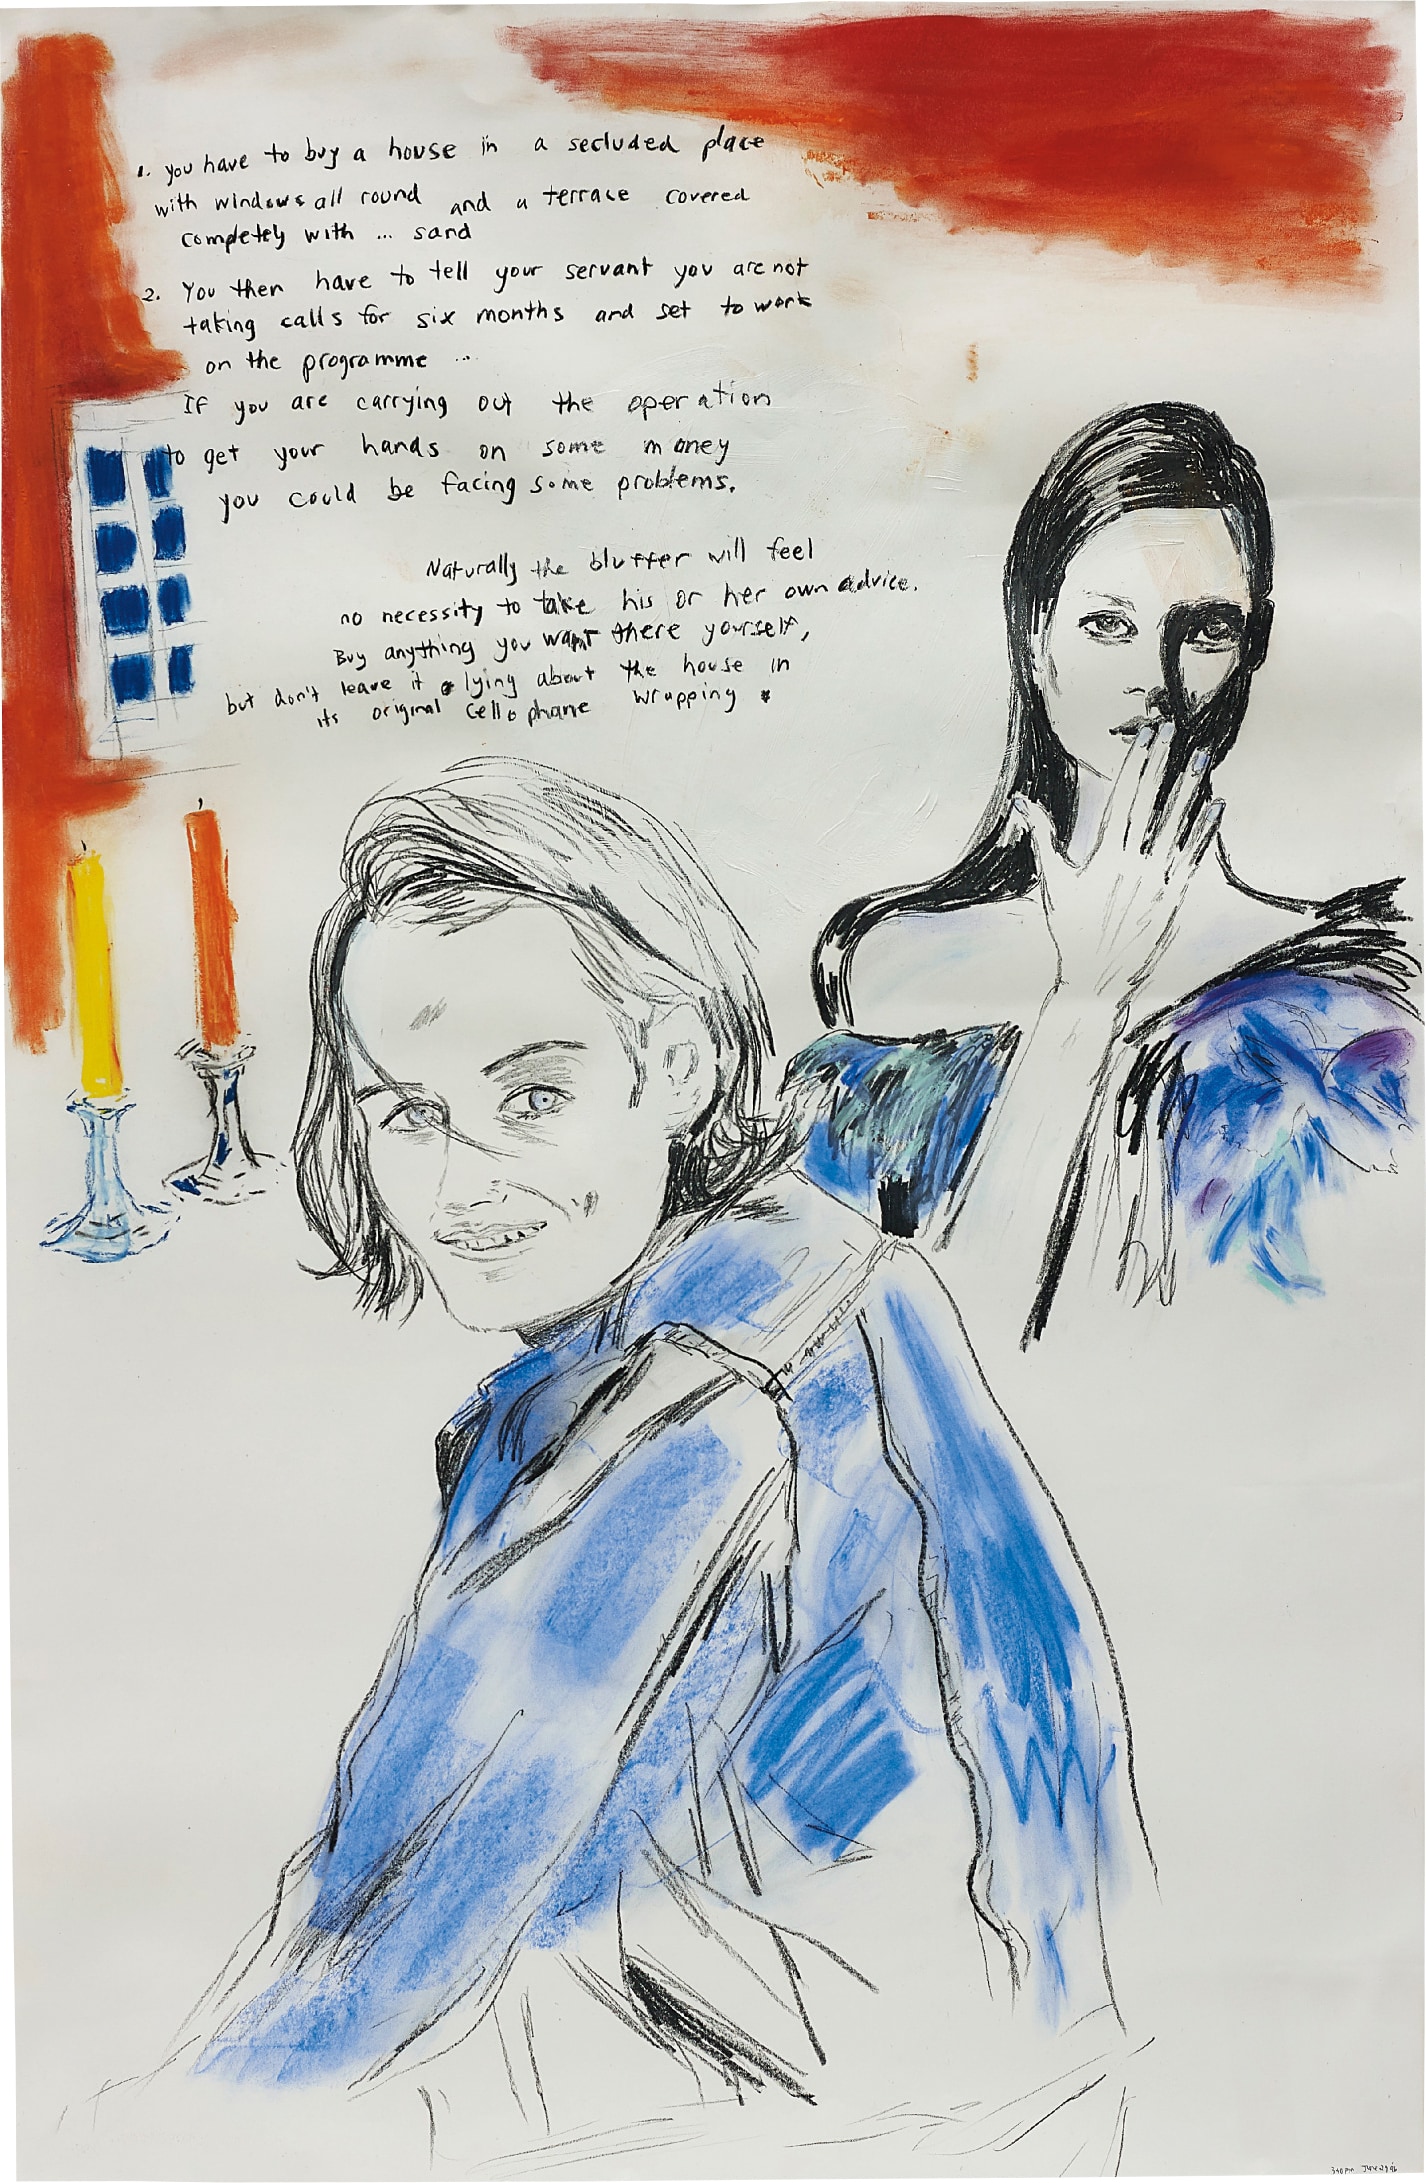 1. you have to buy a house in a secluded place
with windows all round and a terrace covered
completely with ... sand
2. You then have to tell your servant you are not
taking calls for six months and set to work
on the programme ...
If you are carrying out the operation
to get your hands on some money
you could be facing some problems.
Naturally the bluffer will feel
no necessity to take his or her own advice.
Buy anything you want there yourself,
but don't leave it lying about the house in
its original cellophane wrapping
3:40pm